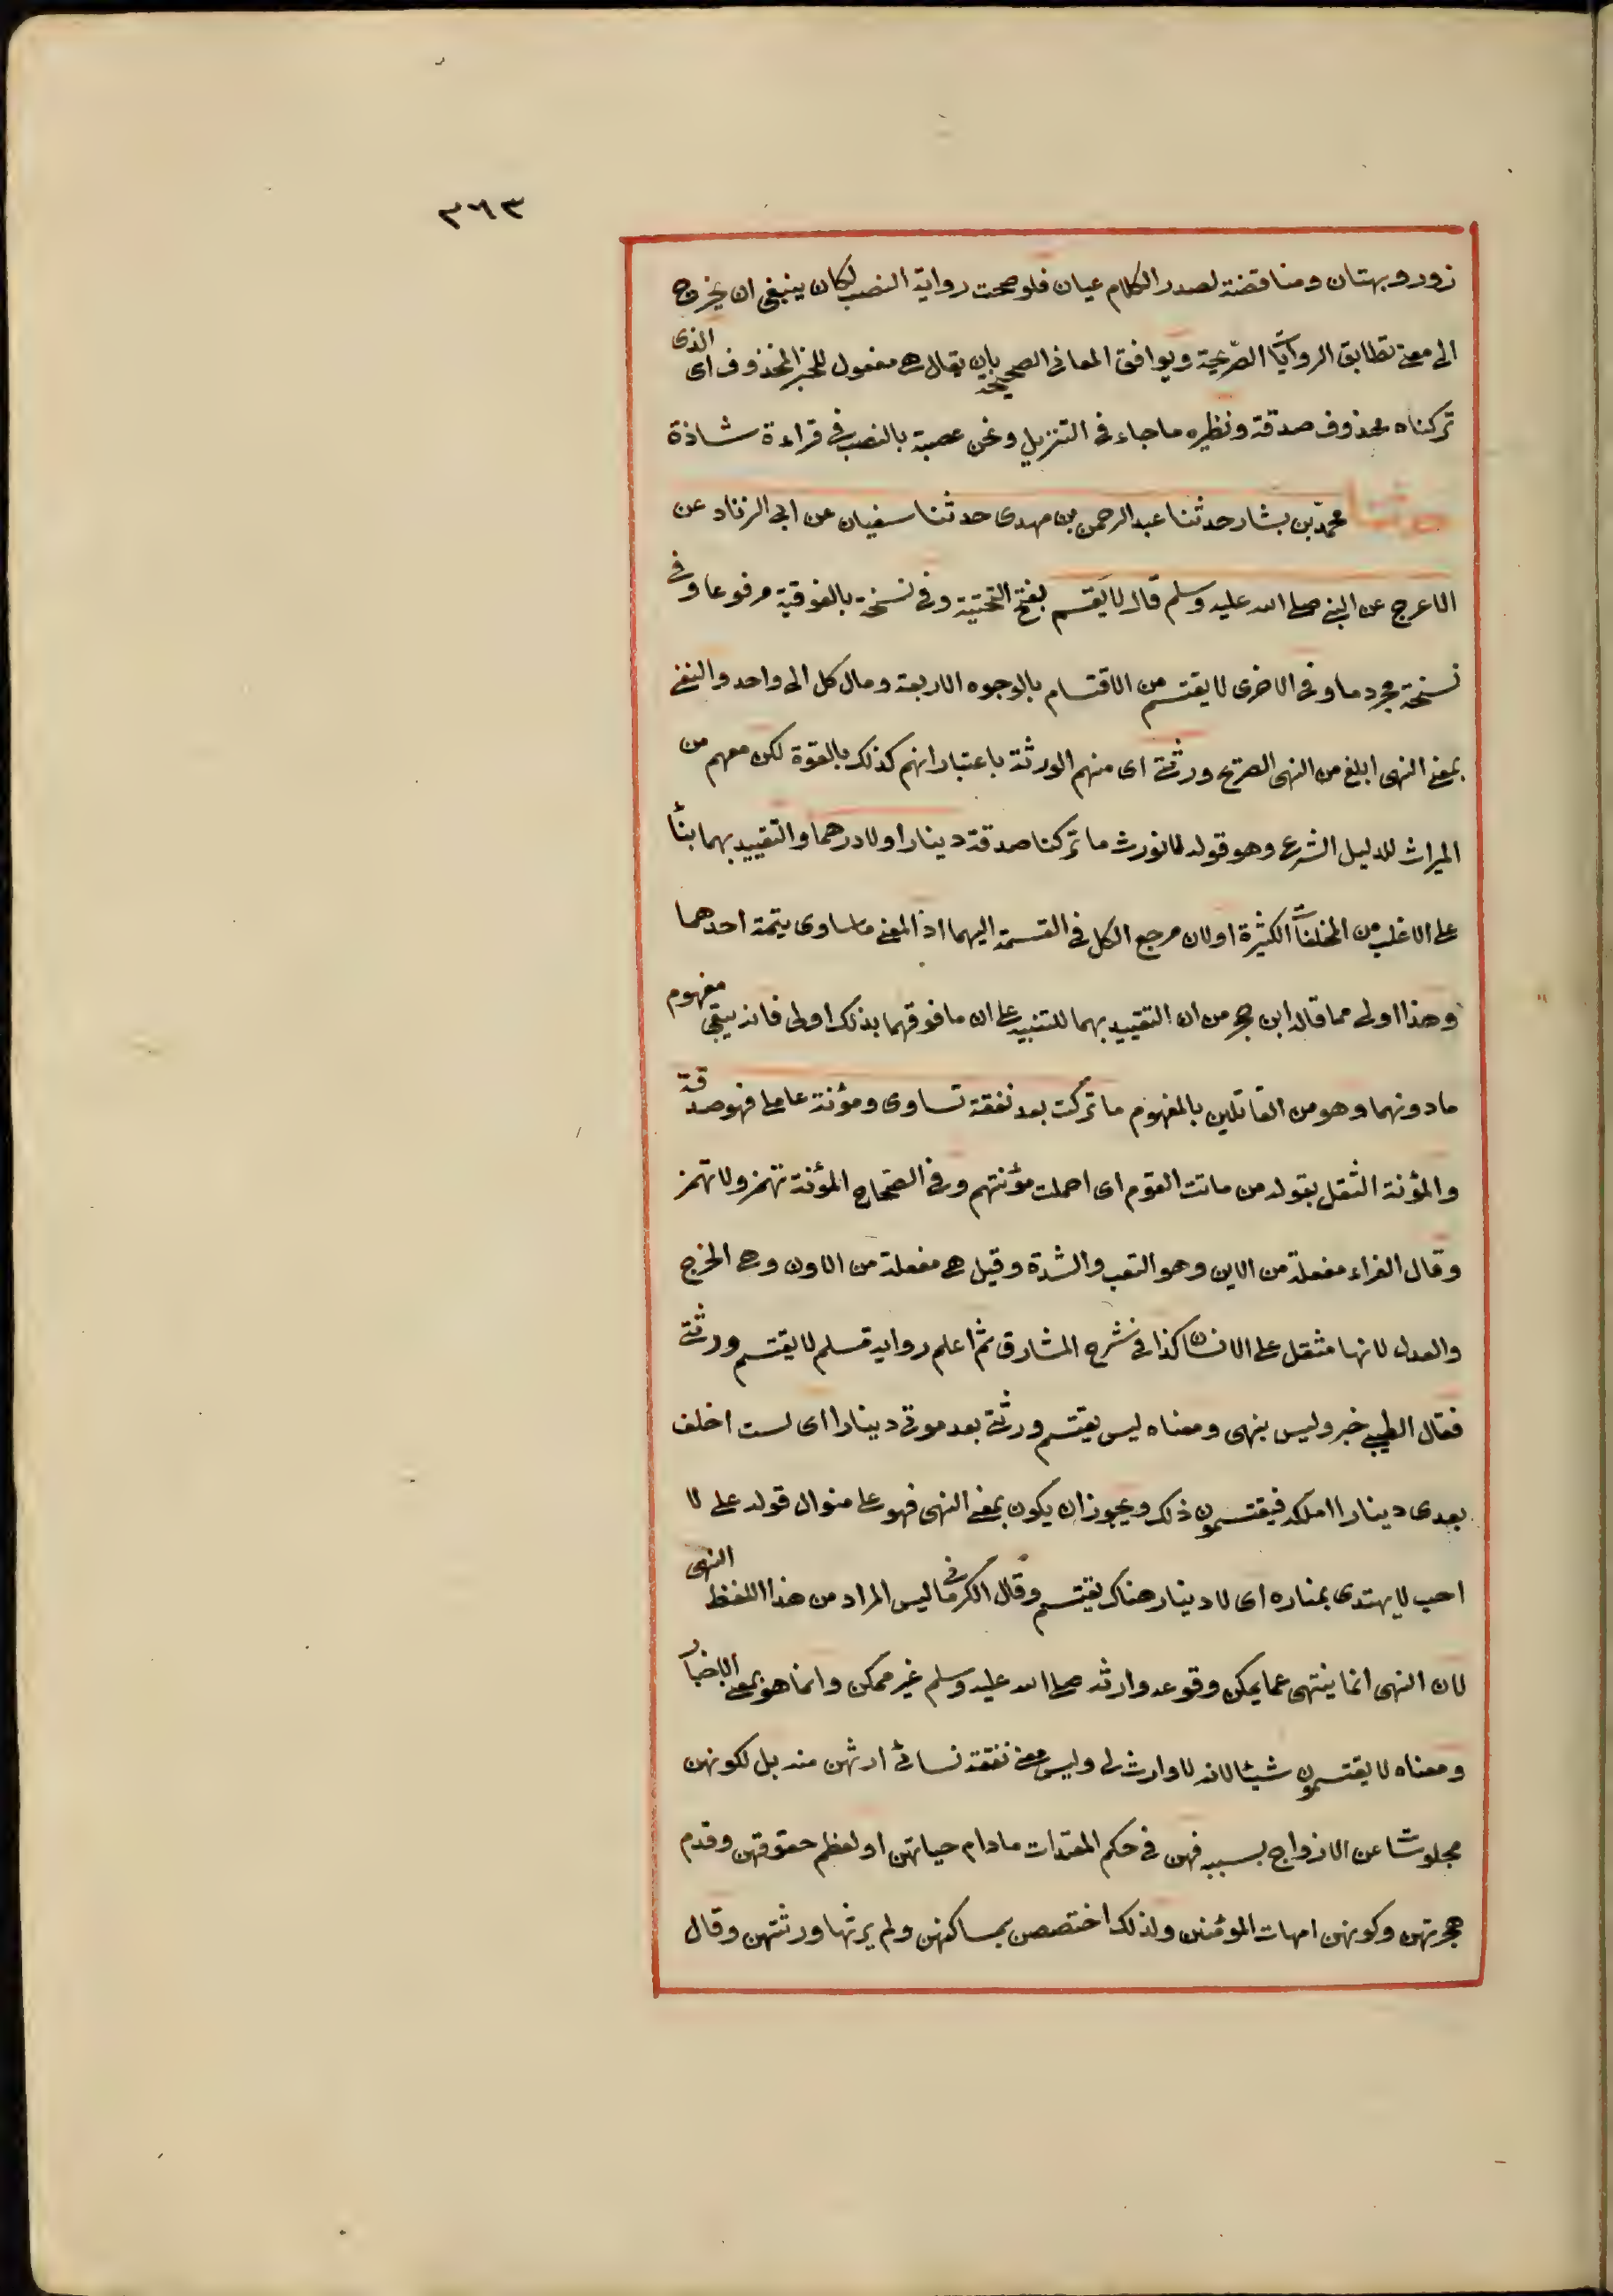 ٣٦٣
زور وبهتان ومناقضة لصدر الكلام عيان فلو صحت رواية النصب لكان ينبغي ان يخرج
الى معنى تطابق الروايات الصريحة ويوافق المعاني الصحيحة بان يقال هي مفعول للخبر المحذوف اى الذى
تركناه محذوف صدقة ونظيره ما جاء في التنزيل ونحن عصبة بالنصب في قراءة شاذة
حدثنا محمد بن بشار حدثنا عبد الرحمن بن مهدى حدثنا سفيان عن ابى الزناد عن
الاعرج عن النبي صلى الله عليه وسلم قال لا يقسم بفتح التحتية وفي نسخة بالفوقية مرفوعا وفي
نسخة مجزوما وفي الاخرى لا يقتسم من الاقتسام بالوجوه الاربعة ومال كل الى واحد والنفي
بمعنى النهى ابلغ من النهى الصريح ورثتى اى منهم الورثة باعتبار انهم كذلك بالقوة لكن معهم من
الميراث للدليل الشرعى وهو قوله لا نورث ما تركنا صدقة دينارا ولا درهما والتقييد بهما بناً
على الاغلب من المخلفات الكثيرة او لان مرجع الكل في القسمة اليهما اذ المعنى ما ساوى يتمة احدهما
وهذا اولى مما قاله ابن حجر من ان التقييد بهما للتنبيه على ان ما فوقهما بذلك اولى فانه يبقى مفهوم
ما دونهما وهو من القائلين بالمفهوم ما تركت بعد نفقة نساوى ومؤنة عاملى فهو صدقة
والمؤنة الثقل بقوله من مانت القوم اى احملت مؤنتهم وفي الصحاح المؤنة تهمز ولا تهمز
وقال الفراء مفعلة من الاين وهو التعب والشدة وقيل هي مفعلة من الاون وهى الخرج
والعدل لانها مثقل على الانسان كذا في شرح المشارق ثم اعلم رواية مسلم لا يقتسم ورثتى
فقال الطيبى خبر وليس بنهى ومعناه ليس يقتسم ورثتى بعد موتى دينارا اى لست اخلف
بعدى دينارا املكه فيقتسمون ذلك ويجوز ان يكون بمعنى النهى فهو على منوال قوله على لا
احب لا يهتدى بمناره اى لا دينار هناك يقتسم وقال الكرمانى ليس المراد من هذا اللفظ النهى
لان النهى انما ينتهى عما يمكن وقوعه وارثه صلى الله عليه وسلم غير ممكن وانما هو بمعنى الاخبار
ومعناه لا يقتسمون شيئا لانه لا وارث لى وليس معنى نفقة نسائى ارثهن منه بل لكونهن
محبوسات عن الازواج بسببه فهن في حكم المعتدات ما دام حياتهن او لعظم حقوقهن وقدم
هجرتهن وكونهن امهات المؤمنين ولذلك اختصصن بمساكنهن ولم يرثها ورثتهن وقال